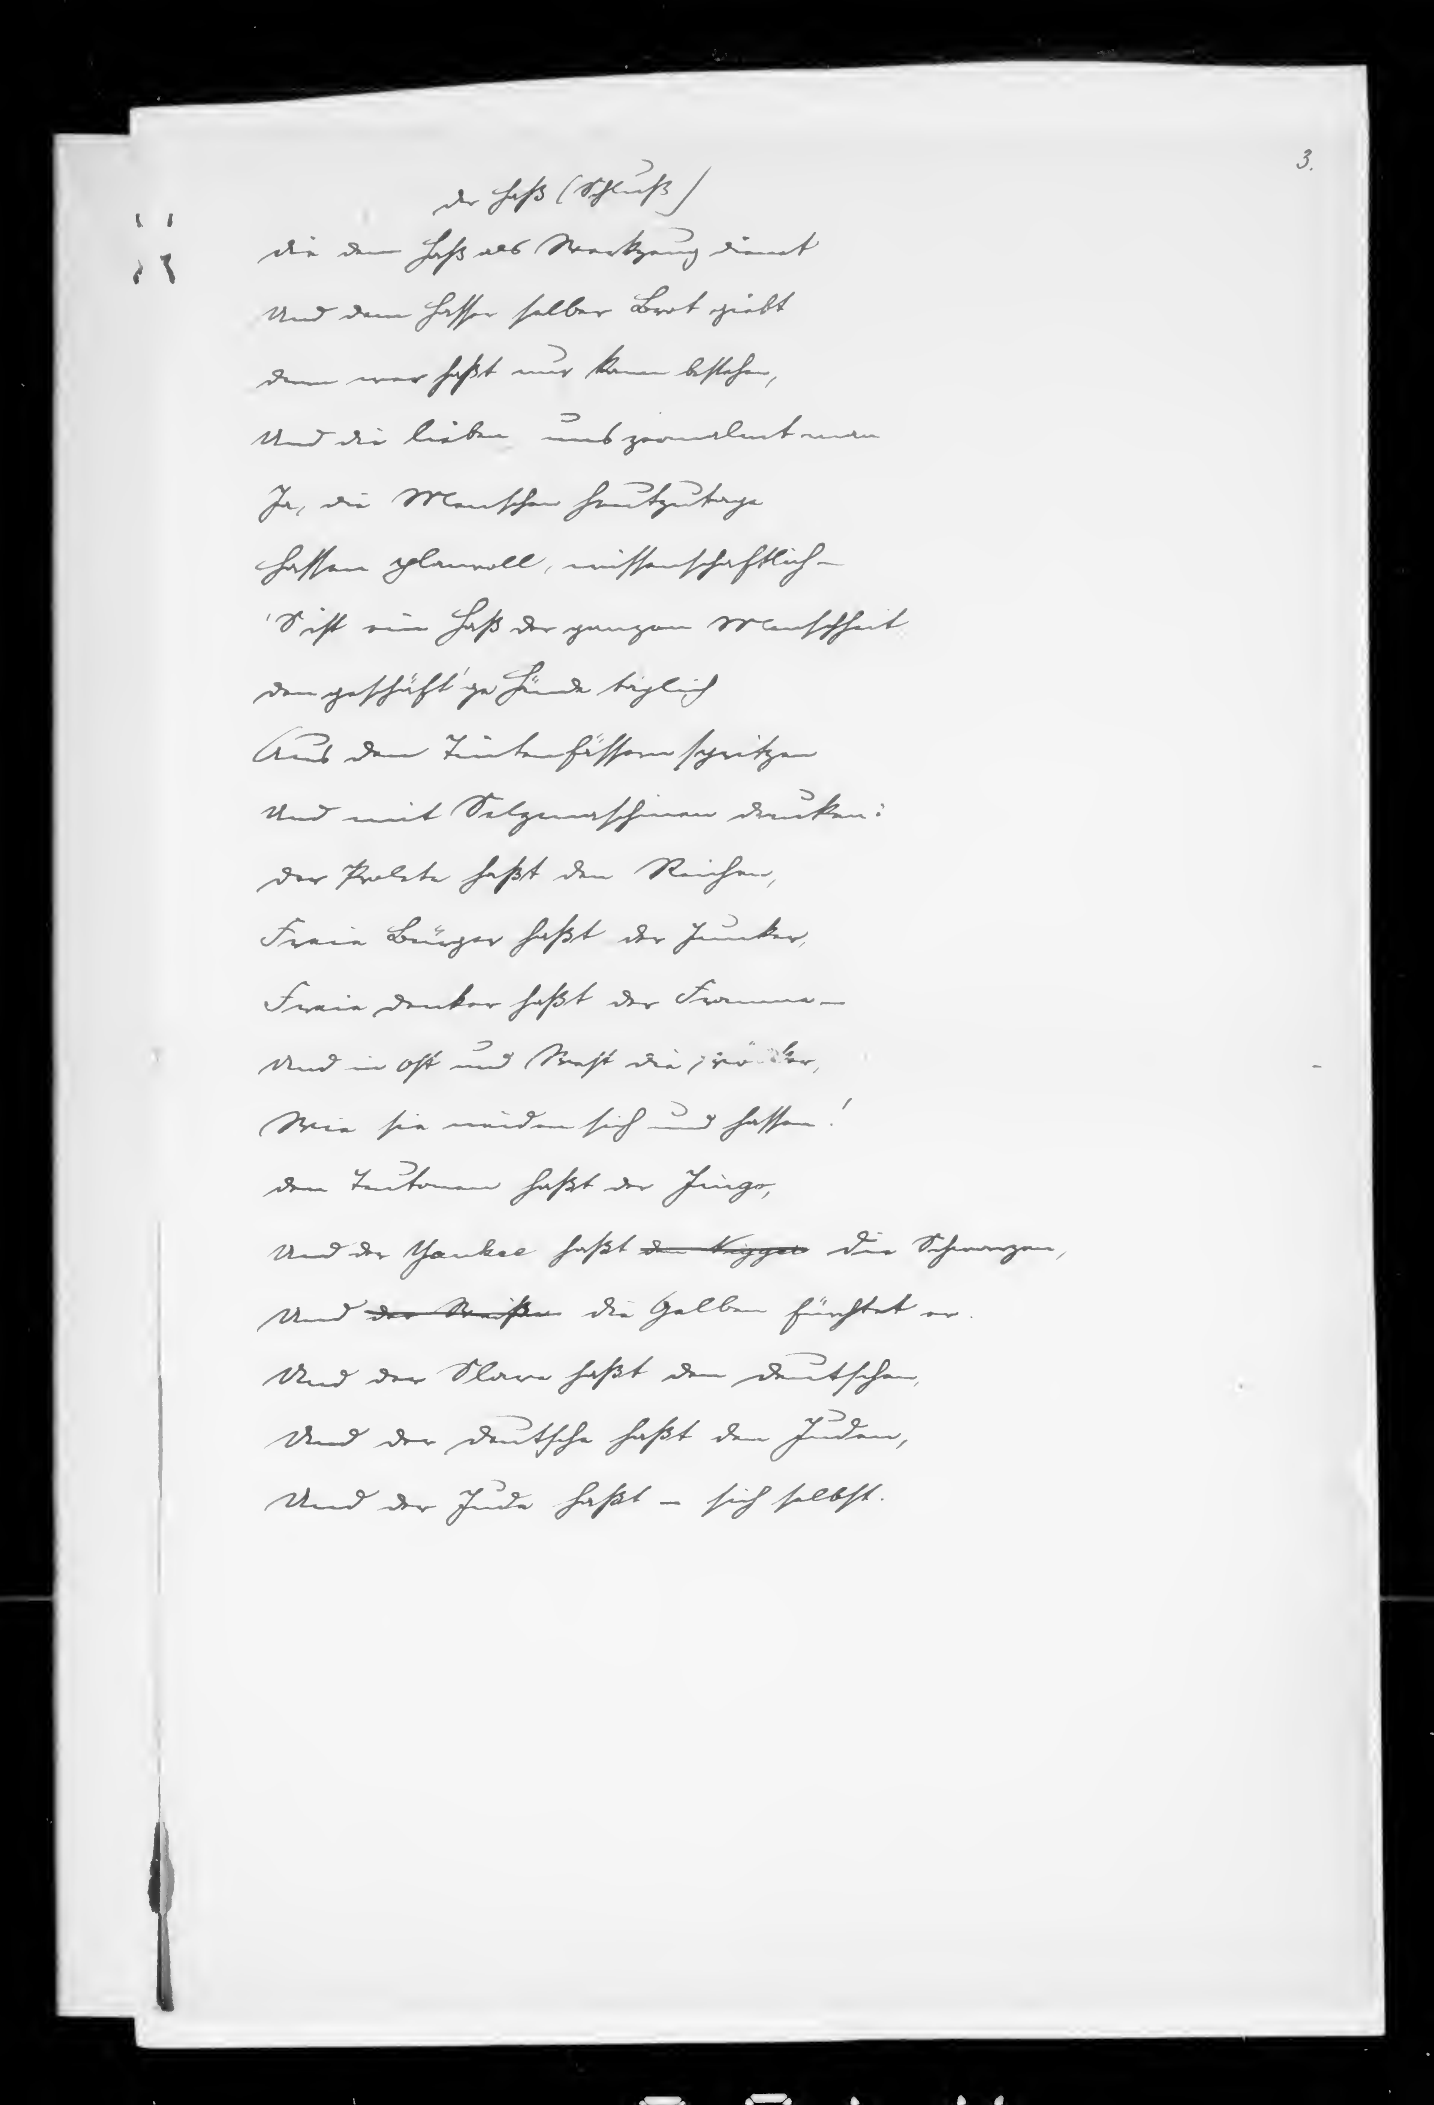 3.
der Haß (Schluß)
die dem Haß als Werkzeug dienet
Und dem Hasser selber Brot giebt
denn wer haßt nur kann bestehen,
Und die lieben uns zermalmt man
Ja, die Menschen heutzutage
Hassen planvoll, wissenschaftlich –
'S ist ein Haß der ganzen Menschheit
den geschäft'ge Hände täglich
Aus den Tintenfässern spritzen
Und mit Setzmaschinen drucken:
der Prolete haßt den Reichen,
Freie Bürger haßt der Junker,
Freie denker haßt der Fromme –
Und in Ost und West die Völker,
Wie sie neiden sich und hassen!
den Teutonen haßt der Jingo,
Und der Yankee haßt den Nigger die Schwarzen,
Und der Weiße die Gelben fürchtet er.
Und der Slave haßt den deutschen,
Und der deutsche haßt den Juden,
Und der Jude haßt – sich selbst.